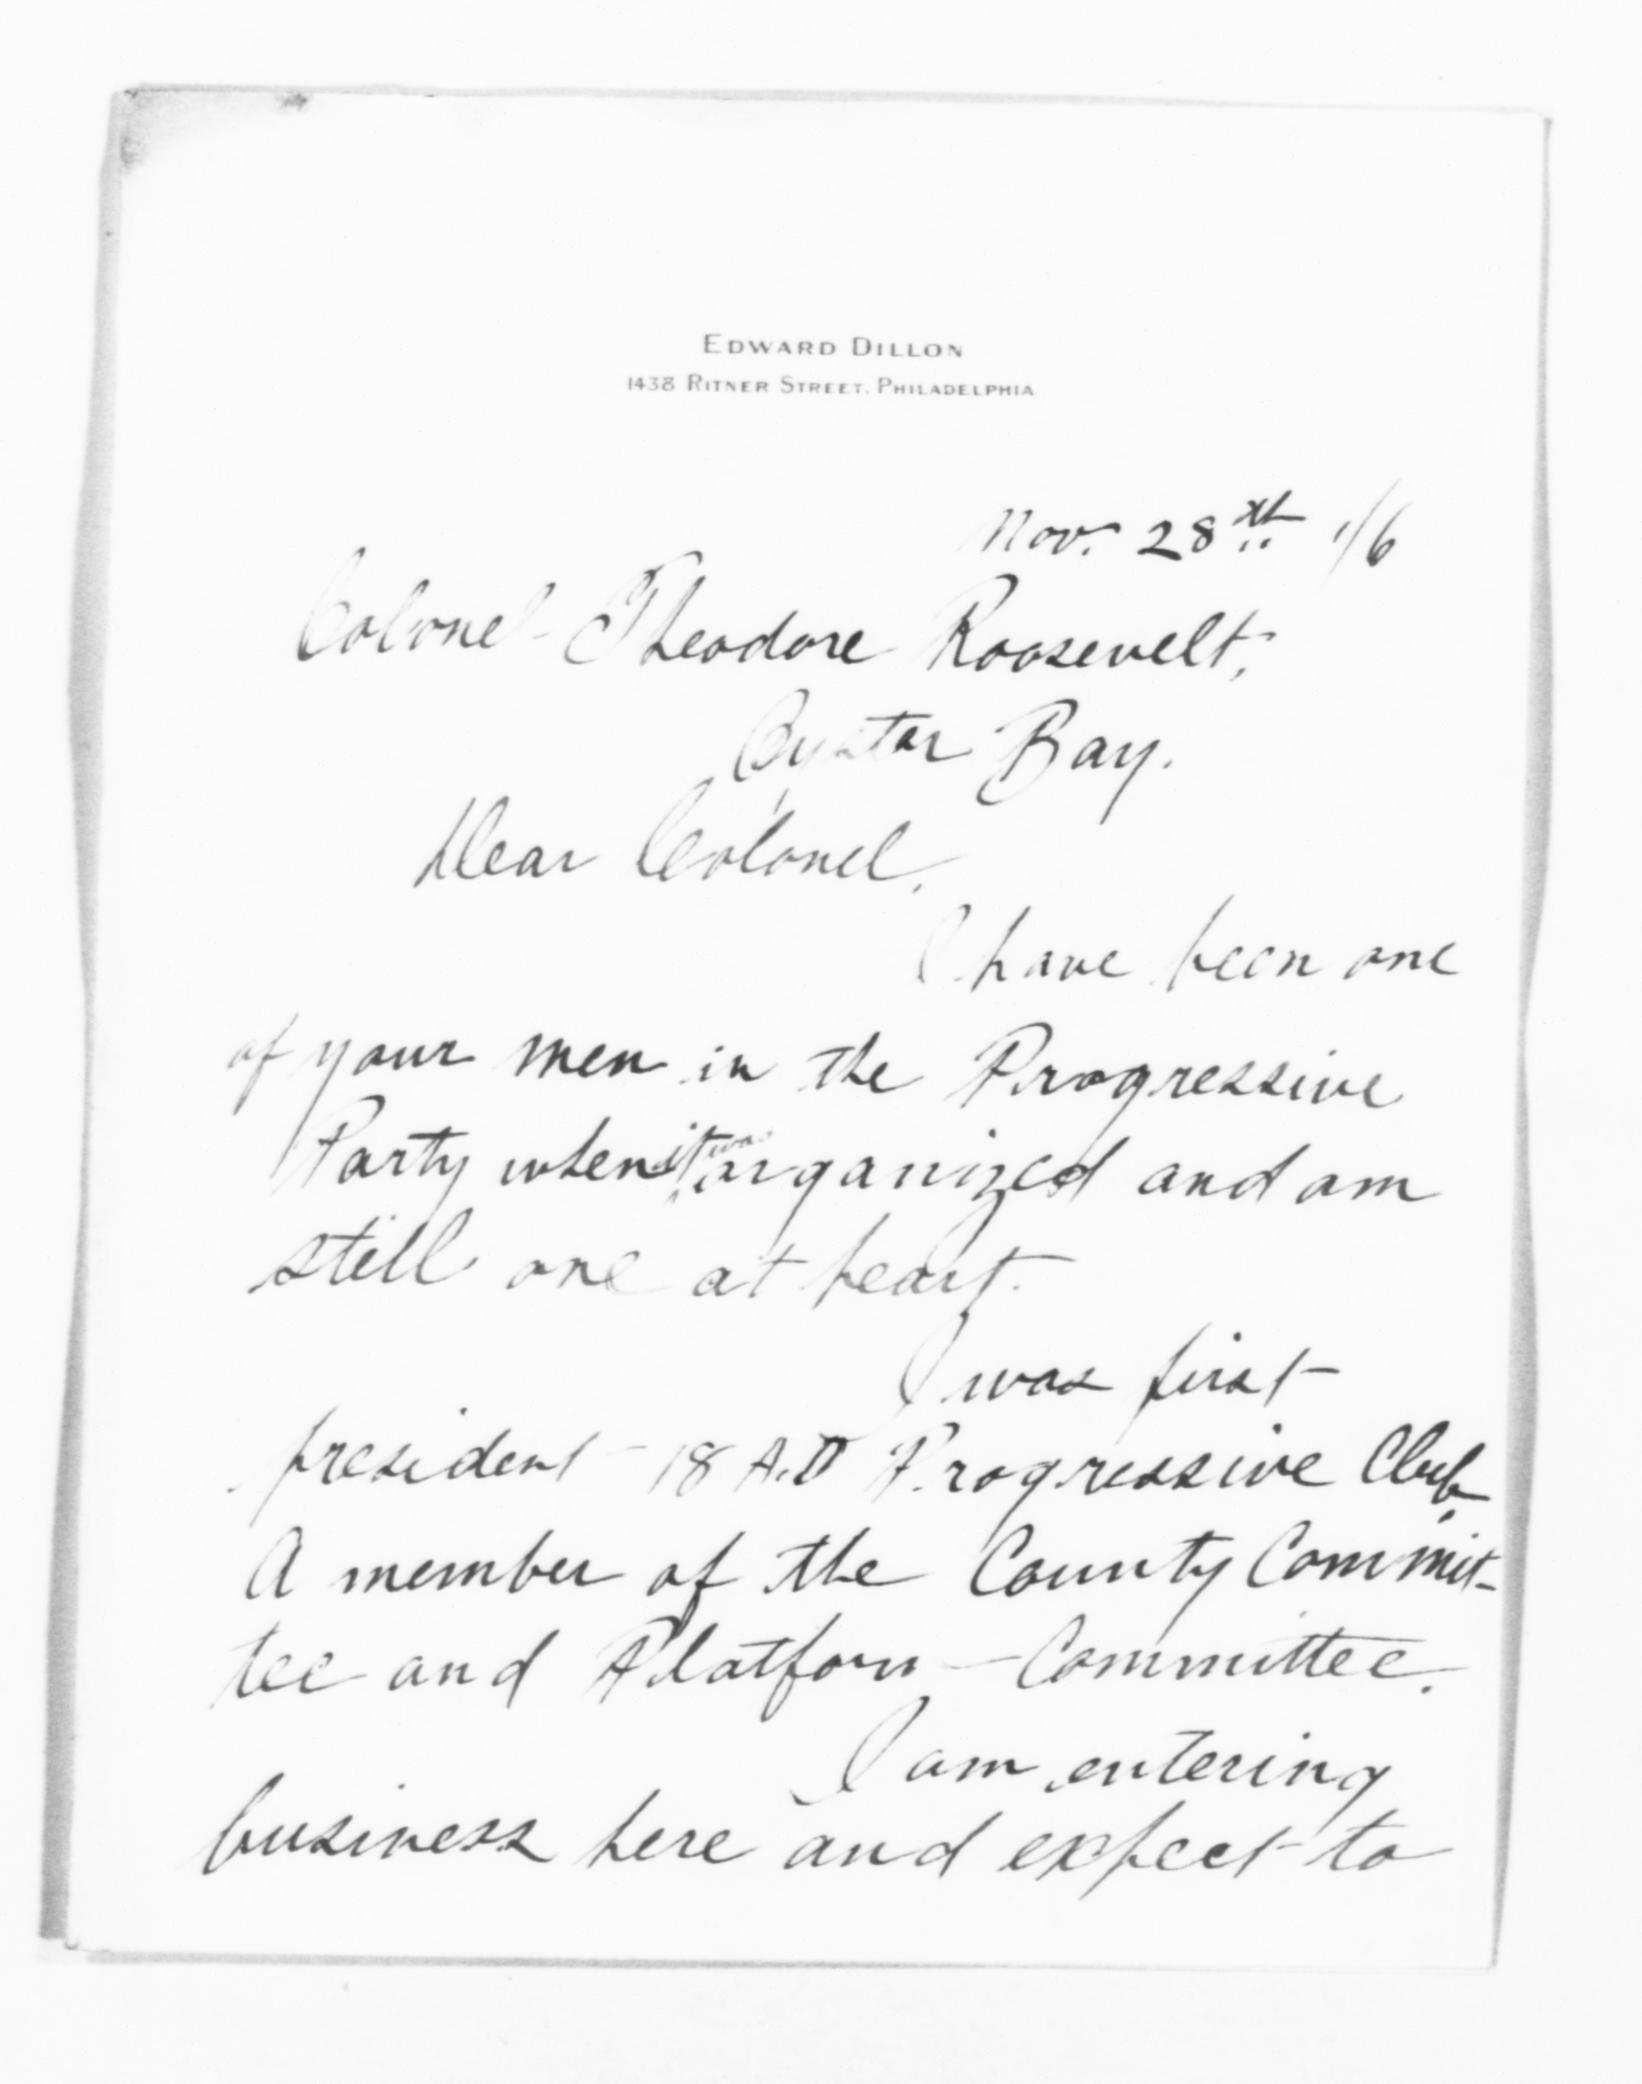 EDWARD DILLON
1438 RITNER STREET, PHILADELPHIA
Nov. 28th '16
Colonel Theodore Roosevelt,
Oyster Bay.
Dear Colonel,
I have been one
of your men in the Progressive
Party when it was organized and am
still one at heart.
I was first
president 18 A.D Progressive Club.
A member of the County Commit-
tee and Platform Committee.
I am entering
business here and expect to